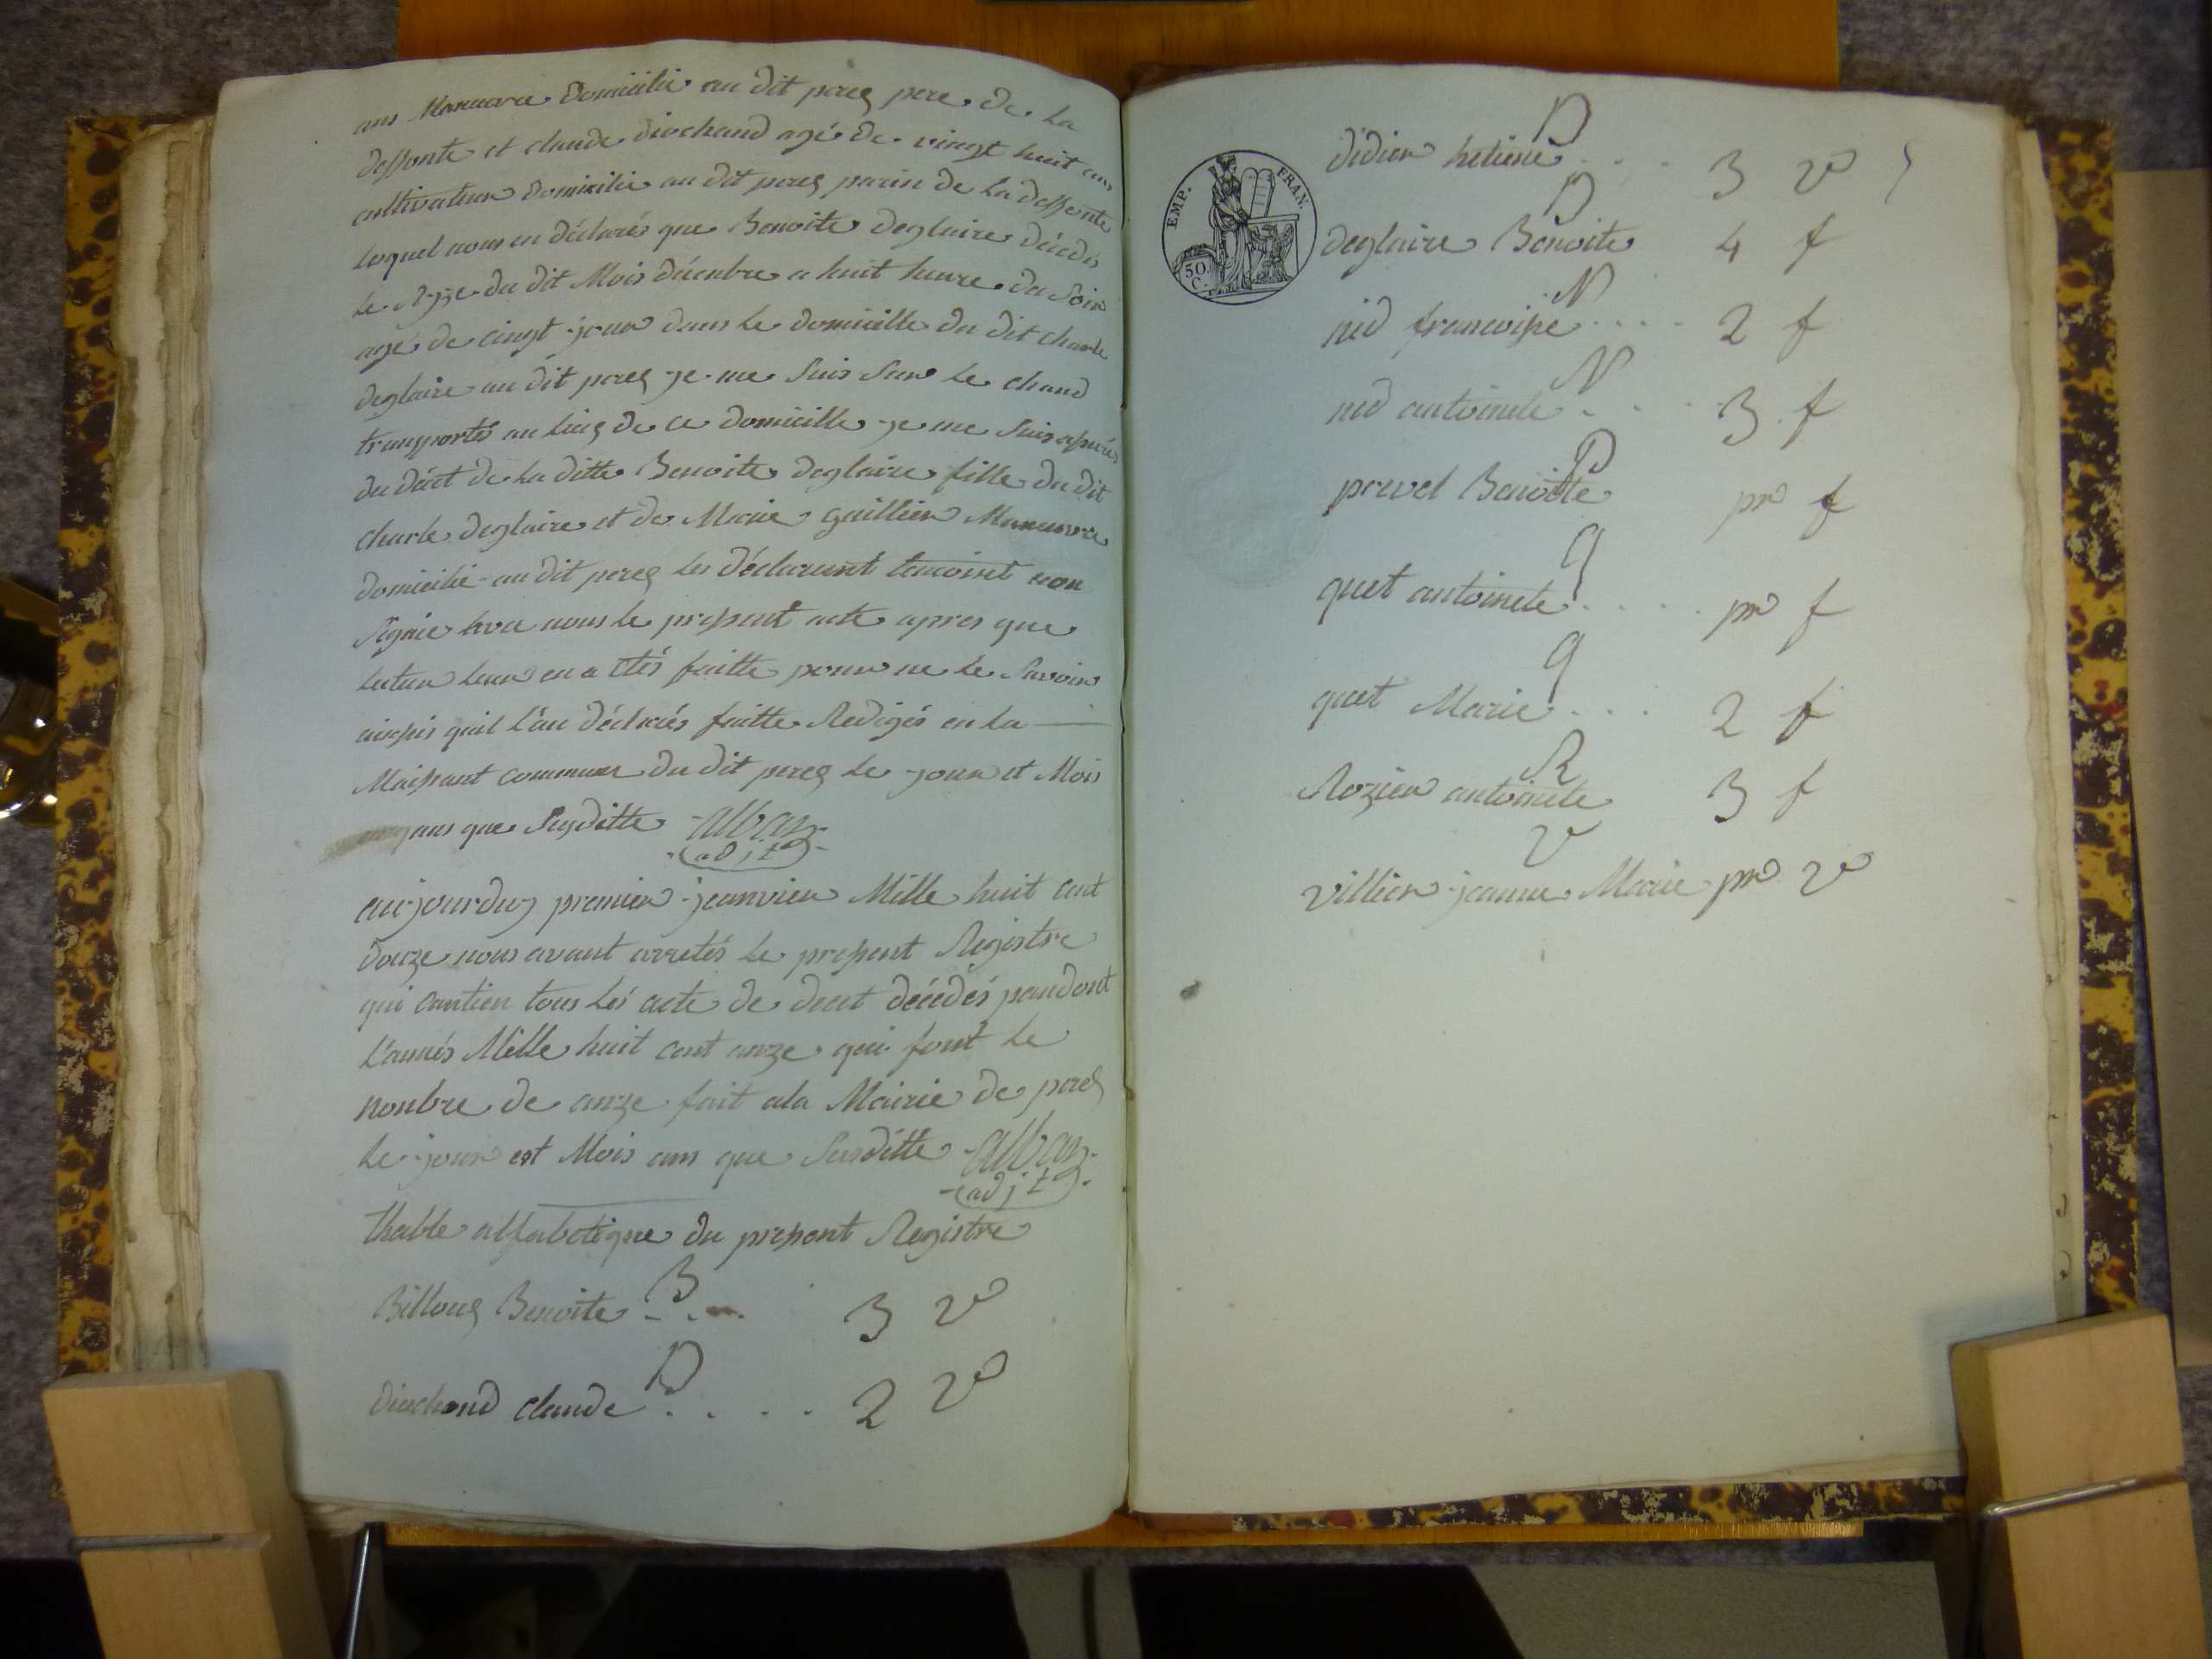 ans Manuavre domicilié au dit perey pere de la
deffonte et claude diochand agé de vingt huit ans
cultivateur domicilié au dit perey parin de la deffonte
lequel nous en déclarés que Benoite deglaire décédés
le du dit Mois décenbre a huit heure du Soir
agé de cingt jour dans le domicille du dit charle
deglaire au dit perey je me Suis Sur le chand
transportés au lieg de ce domicille je me Suis asurés
du décet de la ditte Benoite deglaire fille du dit
charle deglaire et de Marie guillier Manuuvre
domicilié au dit perey les déclarant temoint non
Signie avec nous le present acte apres que
lectur leur en a etés faitte pour ne le Savoir
ainsis quil l'an déclarés faitte Redigés en la
Maisant commune du dit perey le jour et Mois
ans que Suyditte alban
adjt
aujourduy premier janvier Mille huit cent
douze nous avant arretés le present Registre
qui contien tous les acte de decet décédés pandant
l'anneés Mille huit cent onze qui font le
nonbre de onze fait a la Mairie de perey
le jour est Mois ans que Susditte alban
adjt
thable alfabetique du present Registre
B
Billoug Benoite 3 vo
D
diochand claude 2 vo
EMP. FRAN.
50 C.
D
didier helienne 3 vo
D
deglaire Benoite 4 f
N
nid francoise 2 f
N
nid antoinete 3 f
P
prevel Benoite pr f
q
quet antoinete pr f
q
quet Marie 2 f
R
Rozier antoinete 3 f
V
villier jeanne Marie pr vo